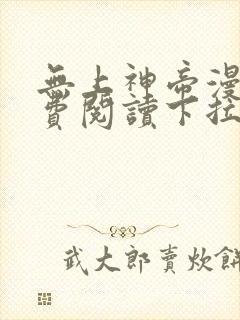 無上神帝漫
費閱讀下拉
武大郎賣炊餅